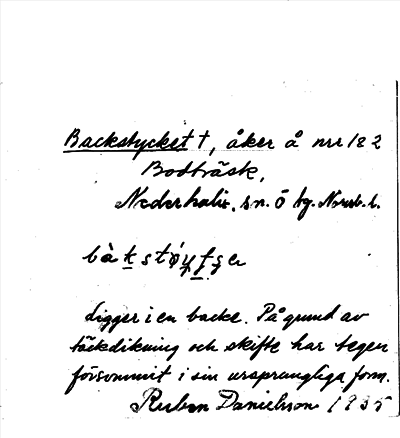 Backstycket †, åker å nrr 1 & 2
Bodträsk,
Nederkalix, sn. Ö bg. Norrb. l.
Ligger i en backe. På grund av
täckdikning och skifte har tegen
försvunnit i sin ursprungliga form.
Ruben Danielsson 1935